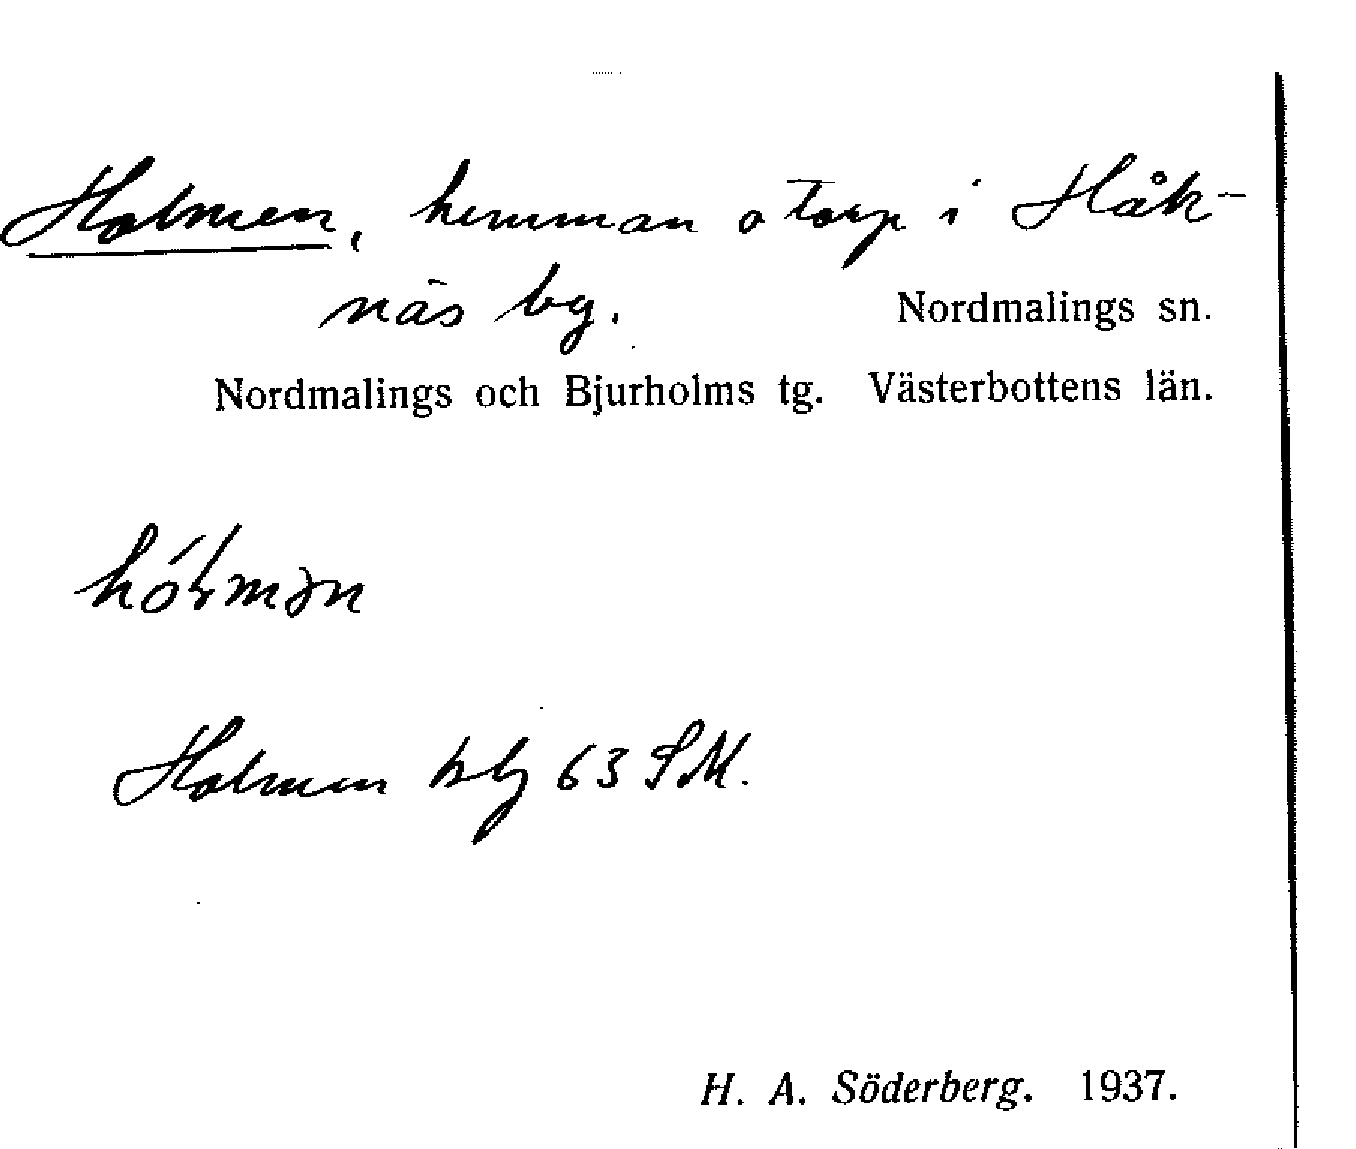 Holmen, hemman o torp i Håk-
näs bg. Nordmalings sn.
Nordmalings och Bjurholms tg. Västerbottens län.
Holmen 63 SM.
H. A. Söderberg. 1937.